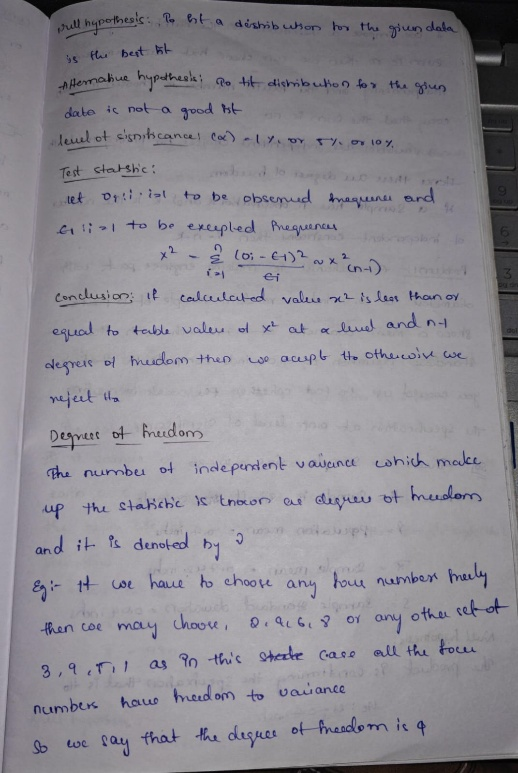 Null hypothesis: To fit a distribution for the given data
is the best fit
Alternative hypothesis: To fit distribution for the given
data is not a good fit
level of significance: (α) = 1%, or 5%, or 10%
Test statstic:
let Oi: i=1 to be observed frequencies and
Ei: i=1 to be excepted frequencies
x² = Σ (Oi - Ei)² / Ei ~ x² (n-1)
Conclusion: if calculated value x² is less than or
equal to table value of x² at α level and n-1
degrees of freedom then we accept Ho otherwise we
reject Ho
Degrees of freedom
The number of independent variance which make
up the statistic is known as degree of freedom
and it is denoted by ν
Eg:- If we have to choose any four numbers freely
then we may choose, 2, 4, 6, 8 or any other set of
3, 9, 5, 1 as in this case all the four
numbers have freedom to variance
So we say that the degree of freedom is 4